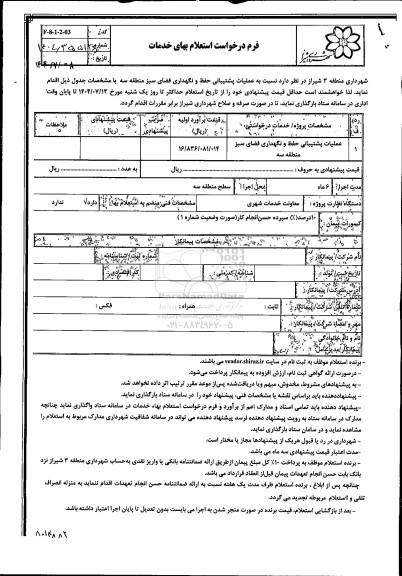 کد: F-8-1-2-03
فرم درخواست استعلام بهای خدمات
شماره
شهرداری منطقه ۳ شیراز در نظر دارد نسبت به عملیات پشتیبانی حفظ و نگهداری فضای سبز منطقه سه با مشخصات جدول ذیل اقدام
نماید. لذا خواهشمند است حداقل قیمت پیشنهادی خود را از تاریخ استعلام حداکثر تا روز یک شنبه مورخ ۱۴۰۴/۰۷/۱۳ تا پایان وقت
اداری در سامانه ستاد بارگذاری نماید، تا در صورت صرفه و صلاح شهرداری شیراز برابر مقررات اقدام گردد.
مشخصات پروژه/ خدمات درخواستی قیمت برآورد اولیه (ریال) قیمت پیشنهادی (ریال) ملاحظات
۱ عملیات پشتیبانی حفظ و نگهداری فضای سبز منطقه سه ۱۶/۸۳۶/۰۸۱/۰۱۴
قیمت پیشنهادی به حروف : ریال به عدد : ریال
مدت اجرا: ۶ ماه محل اجرا: سطح منطقه سه
دستگاه نظارت پروژه : معاونت خدمات شهری مشخصات فنی منضم به استعلام بها: دارد√ ندارد
کسورات پیمان : ۱۰درصد(٪) سپرده حسن‌انجام کار(صورت وضعیت شماره ۱)
مشخصات پیمانکار
نام شرکت/ پیمانکار:
شناسه/ کدملی: کد اقتصادی:
آدرس شرکت/ پیمانکار:
ثابت : همراه : فکس :
مهر و امضاء شرکت/ پیمانکار:
نام و نام خانوادگی
- برنده استعلام موظف به ثبت نام در سایت vendor.shiraz.ir می باشند.
- درصورت ارائه گواهی ثبت نام، ارزش افزوده به پیمانکار پرداخت می‌شود.
- به پیشنهادهای مشروط، مخدوش، مبهم ویا دریافت‌شده پس‌از موعد مقرر ترتیب اثر داده نخواهد شد.
- پیشنهاددهنده باید براساس نقشه یا مشخصات فنی، پیشنهاد خود را در سامانه ستاد بارگذاری نماید.
-پیشنهاد دهنده باید تمامی اسناد و مدارک اعم از برآورد و فرم درخواست استعلام بهاء خدمات در سامانه ستاد واگذاری نماید چنانچه
مدارک در سامانه ستاد به رویت پیشنهاد دهنده نرسد پیشنهاد دهنده می تواند در سامانه شفافیت شهرداری مدارک مربوط به استعلام را
مشاهده نماید و در سامان ستاد بارگذاری نماید.
- شهرداری در رد یا قبول هریک از پیشنهادها مجاز یا مختار است.
-حدت اعتبار قیمت پیشنهادی سه ماه می باشد.
- برنده استعلام موظف به پرداخت ۱۰٪ کل مبلغ پیمان ازطریق ارائه ضمانتنامه بانکی یا واریز نقدی به‌حساب شهرداری منطقه ۳ شیراز نزد
بانک بابت حسن انجام تعهدات پیمان قبل‌از انعقاد قرارداد می باشد.
چنانچه پس از ابلاغ ، برنده استعلام ظرف مدت یک هفته نسبت به ارائه ضمانتنامه حسن انجام تعهدات اقدام ننماید به منزله انصراف
تلقی و استعلام مربوطه تجدید می گردد.
- بعد از بازگشایی استعلام، قیمت برنده در صورت منجر شدن به اجرا می بایست بدون تعدیل تا پایان اجرا اعتبار داشته باشد.